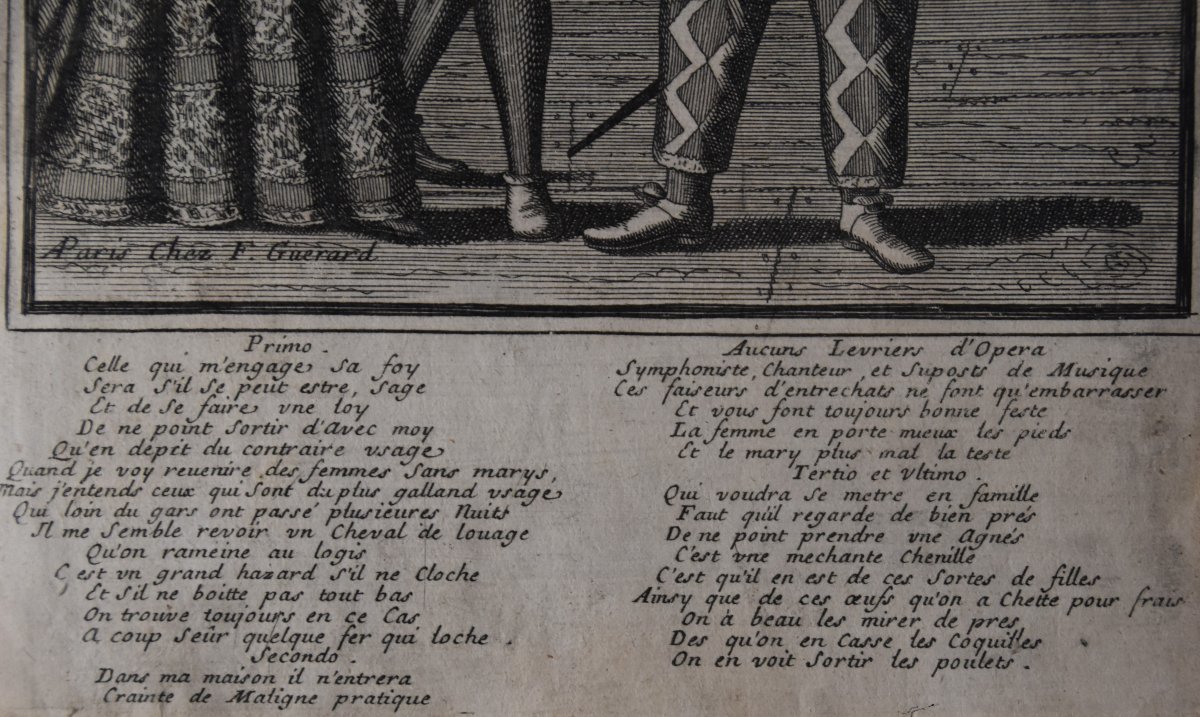 AParis Chez F. Guerard
Primo.
Celle qui m'engage sa foy
Sera s'il se peut estre, sage
Et de se faire vne loy
De ne point sortir d'avec moy
Qu'en dépit du contraire vsage
Quand je voy reuenire des femmes sans marys,
Mais j'entends ceux qui sont du plus galland vsage
Qui loin du gars ont passé plusieures Nuits
Il me semble revoir vn Cheval de louage
Qu'on rameine au logis
C'est vn grand hazard s'il ne Cloche
Et s'il ne boitte pas tout bas
On trouve toujours en ce Cas
A coup seûr quelque fer qui loche.
Secondo.
Dans ma maison il n'entrera
Crainte de Maligne pratique
Aucuns Levriers d'Opera
Symphoniste, Chanteur, et suposts de Musique
Ces faiseurs d'entrechats ne font qu'embarrasser
Et vous font toujours bonne feste
La femme en porte mieux les pieds
Et le mary plus mal la teste
Tertio et Vltimo.
Qui voudra se metre en famille
Faut qu'il regarde de bien prés
De ne point prendre vne Agnés
C'est vne mechante Chenille
C'est qu'il en est de ces sortes de filles
Ainsy que de ces œufs qu'on a Chette pour frais
On à beau les mirer de pres
Des qu'on en Casse les Coquilles
On en voit sortir les poulets.